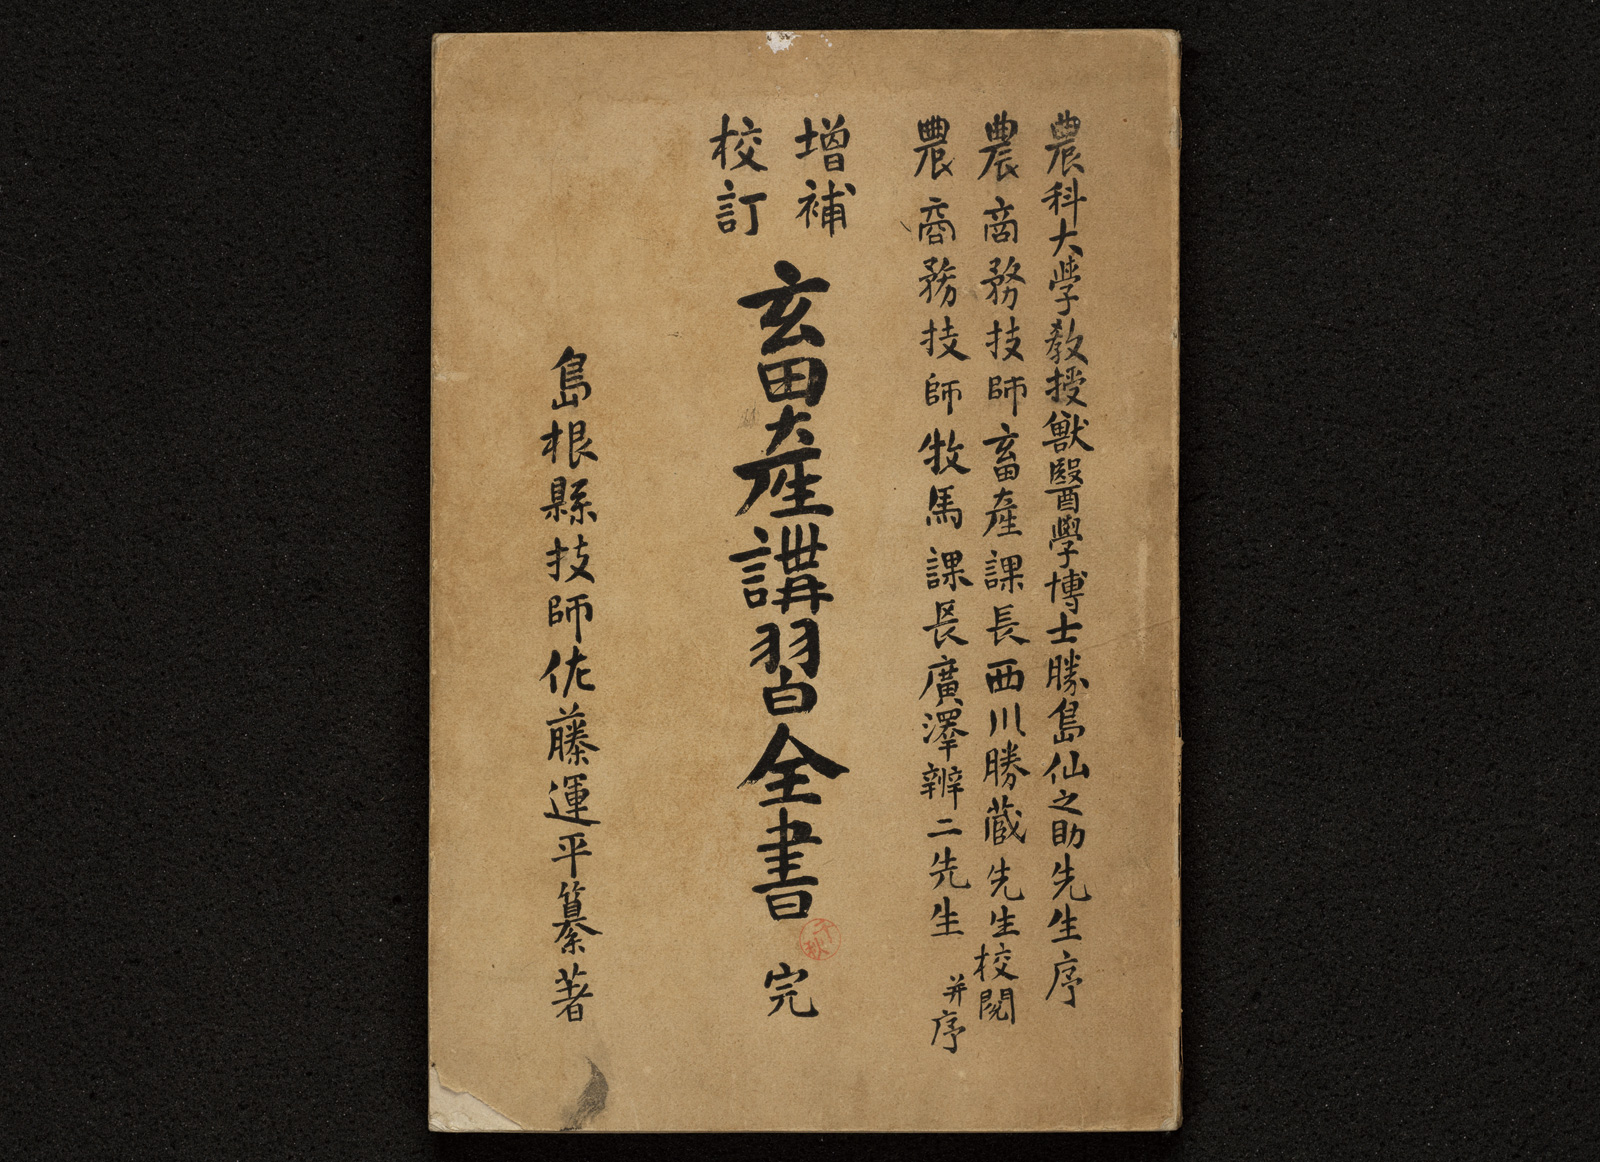 農科大學教授獸醫學博士勝島仙之助先生序
農商務技師畜產課長西川勝蔵先生校閱
農商務技師牧馬課長廣澤辨二先生并序
增補
校訂
畜產講習全書 完
千秋
島根縣技師佐藤運平纂著